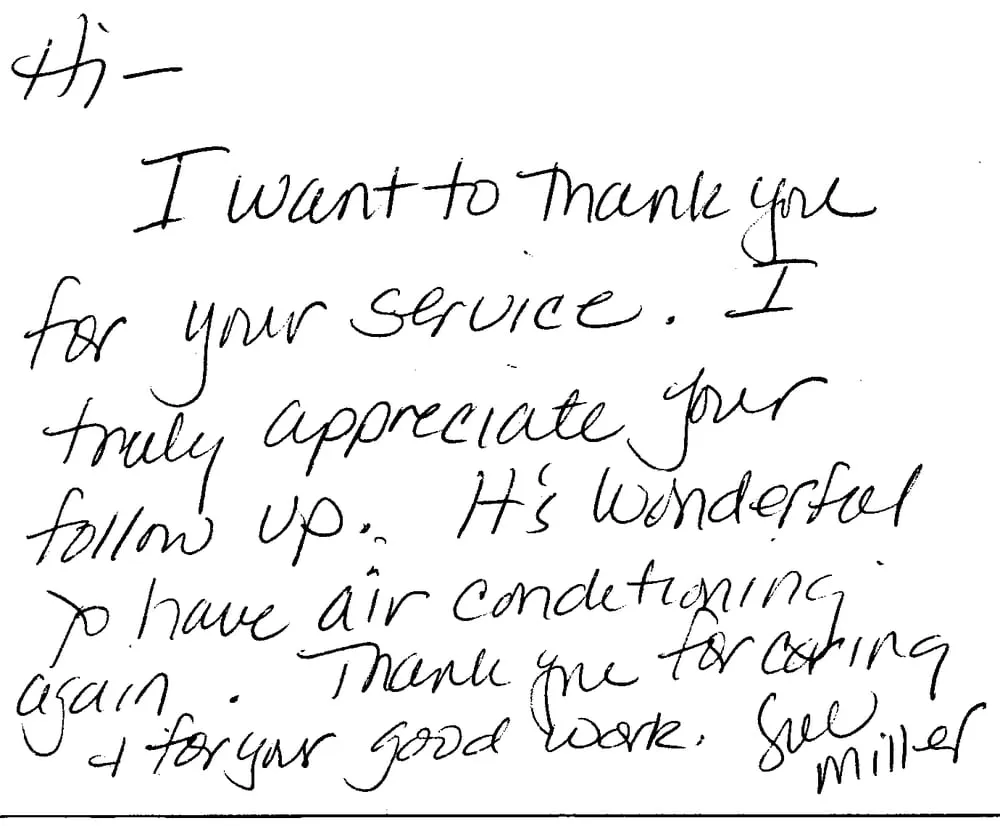 Hi —
I want to thank you
for your service. I
truly appreciate your
follow up. It's wonderful
to have air conditioning
again. Thank you for caring
+ for your good work. Sue
Miller